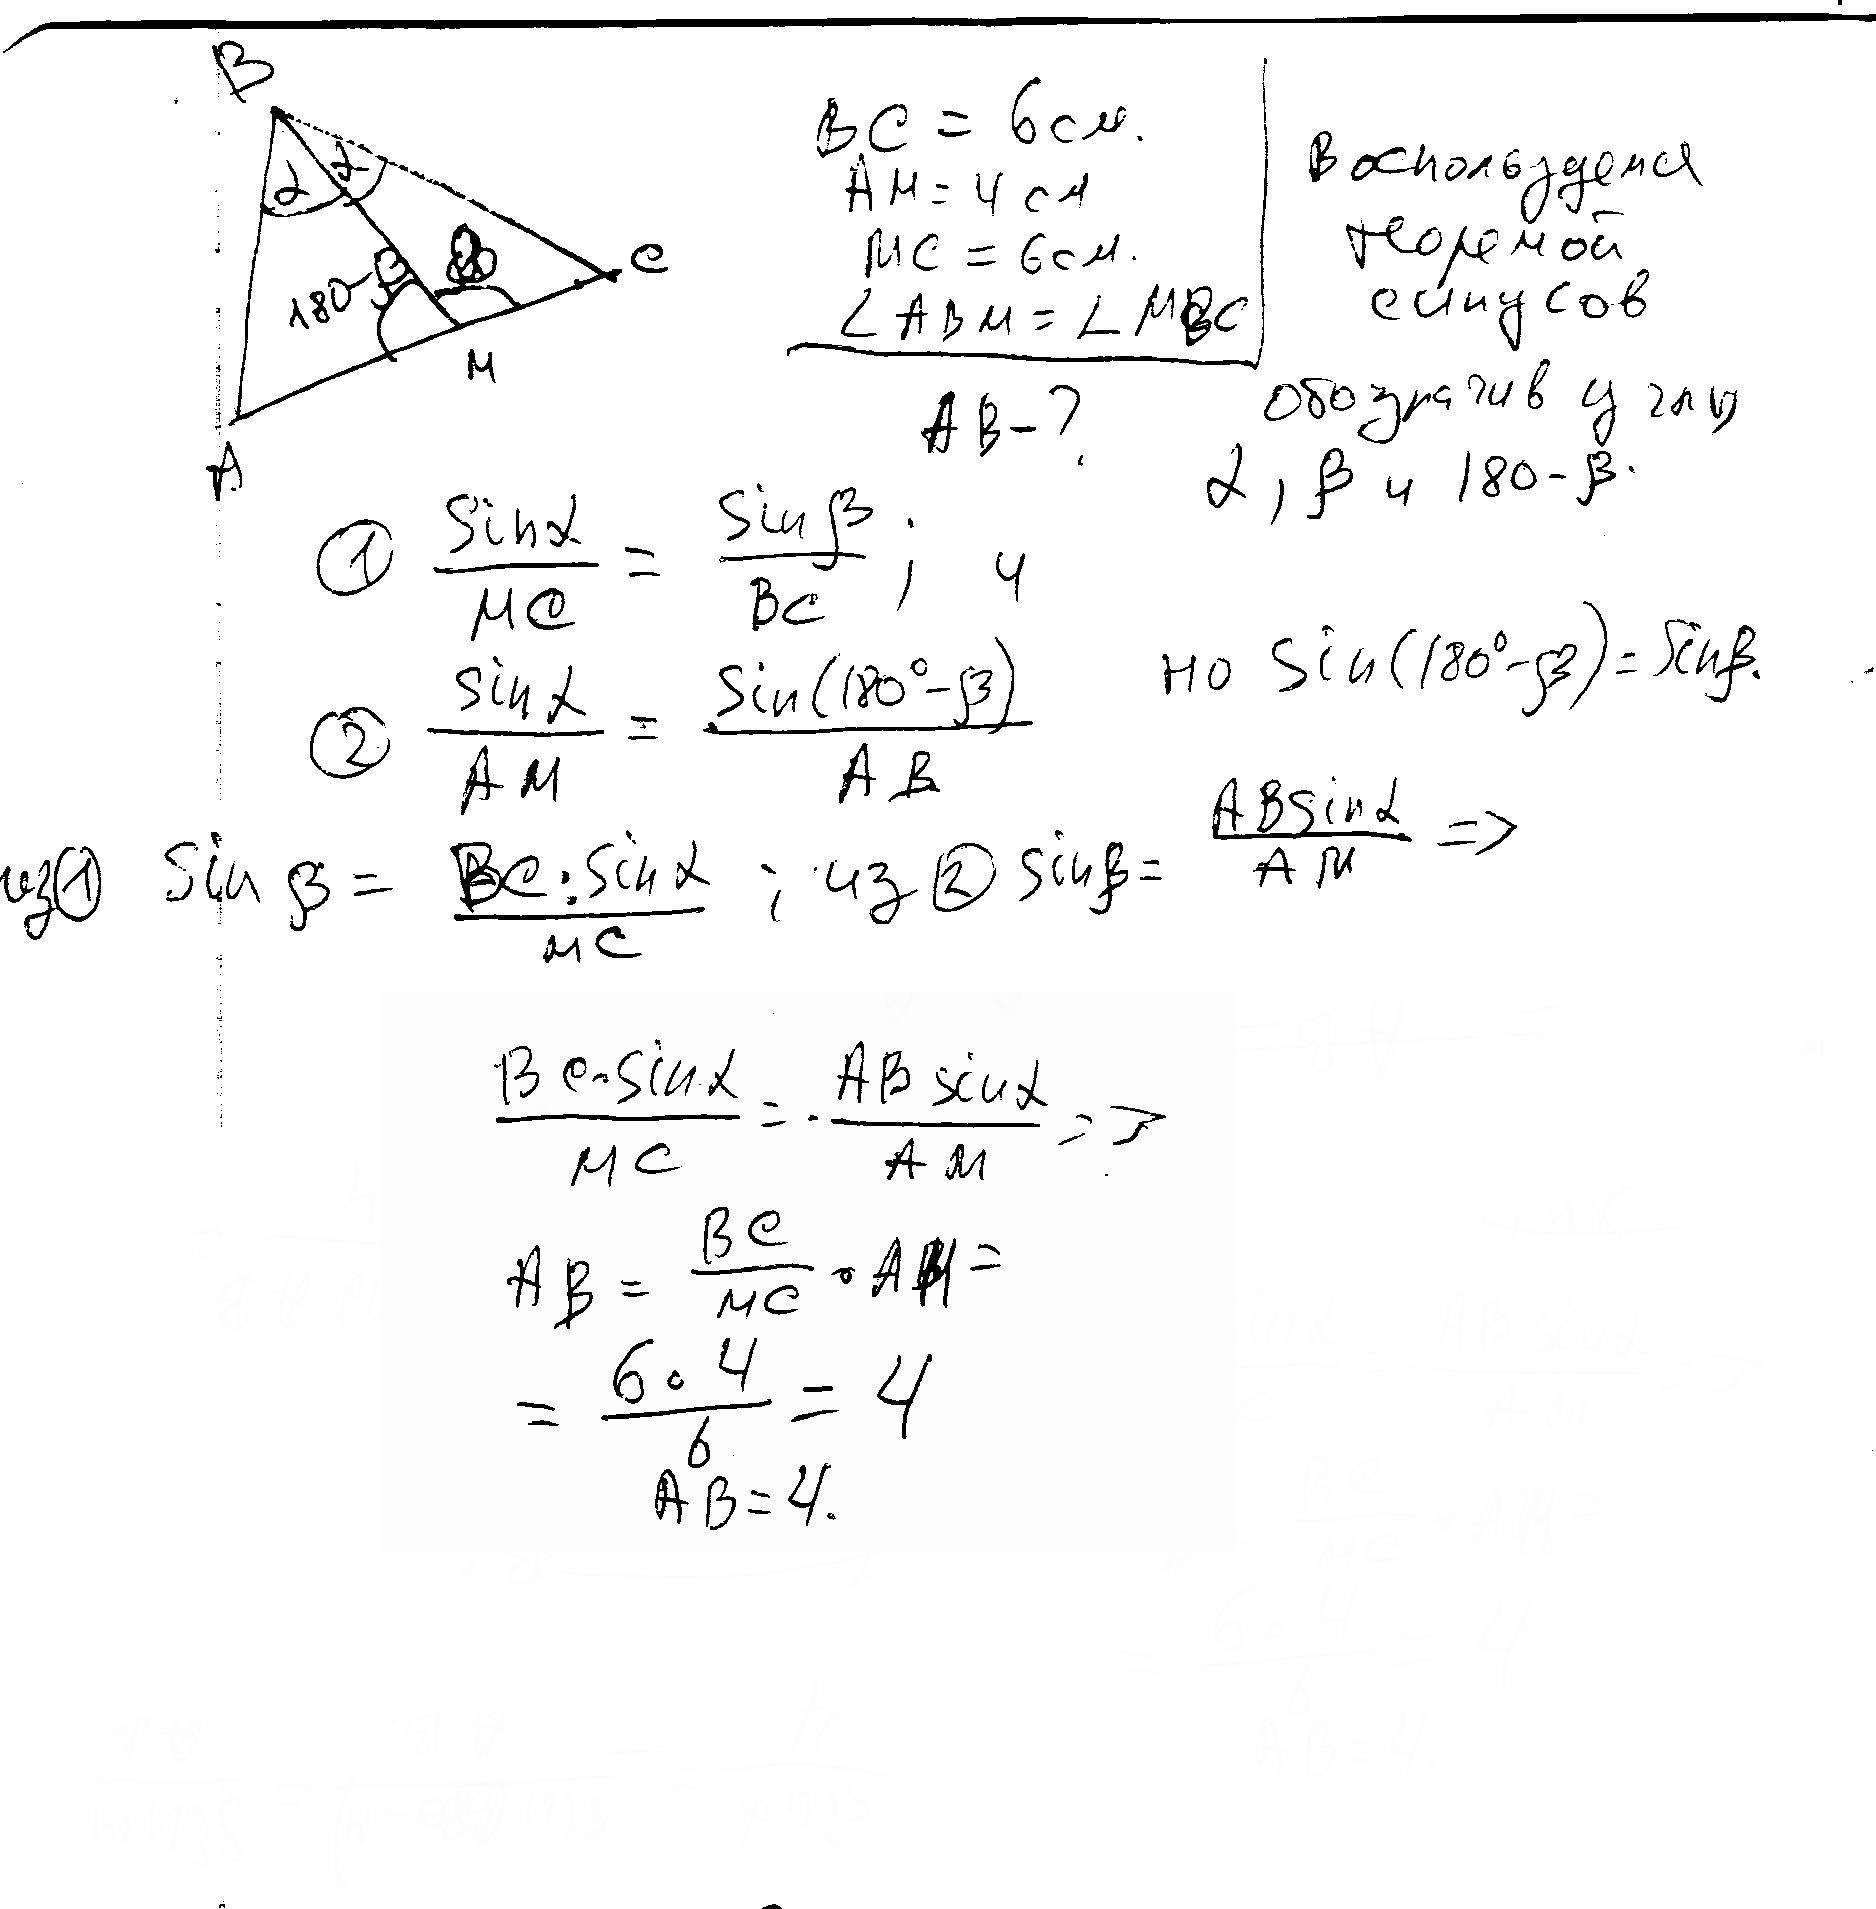 B
α α
180-β
C
M
A
BC = 6 см.
AM = 4 см
MC = 6 см.
∠ABM = ∠MBC
AB - ?
Воспользуемся
теоремой
синусов
обозначив углы
α, β и 180-β.
① sinα/MC = sinβ/BC ; и
② sinα/AM = sin(180°-β)/AB
но sin(180°-β) = sinβ.
из ① sinβ = BC·sinα/MC ; из ② sinβ = ABsinα/AM =>
BC·sinα/MC = ABsinα/AM =>
AB = BC/MC · AM =
= 6·4/6 = 4
AB = 4.